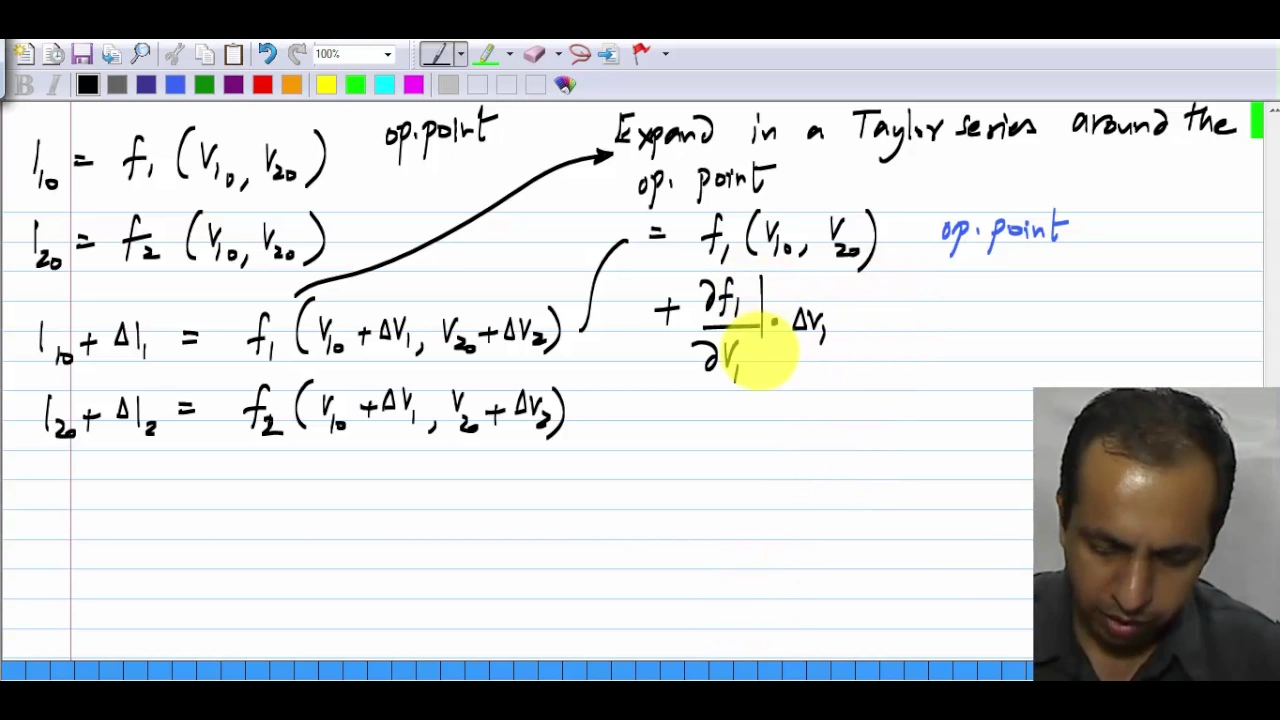 100%
B I
I₁₀ = f₁ (V₁₀, V₂₀) op. point
I₂₀ = f₂ (V₁₀, V₂₀)
I₁₀ + ΔI₁ = f₁ (V₁₀ + ΔV₁, V₂₀ + ΔV₂)
I₂₀ + ΔI₂ = f₂ (V₁₀ + ΔV₁, V₂₀ + ΔV₂)
Expand in a Taylor series around the
op. point
= f₁ (V₁₀, V₂₀) op. point
+ ∂f₁/∂V₁ | · ΔV₁